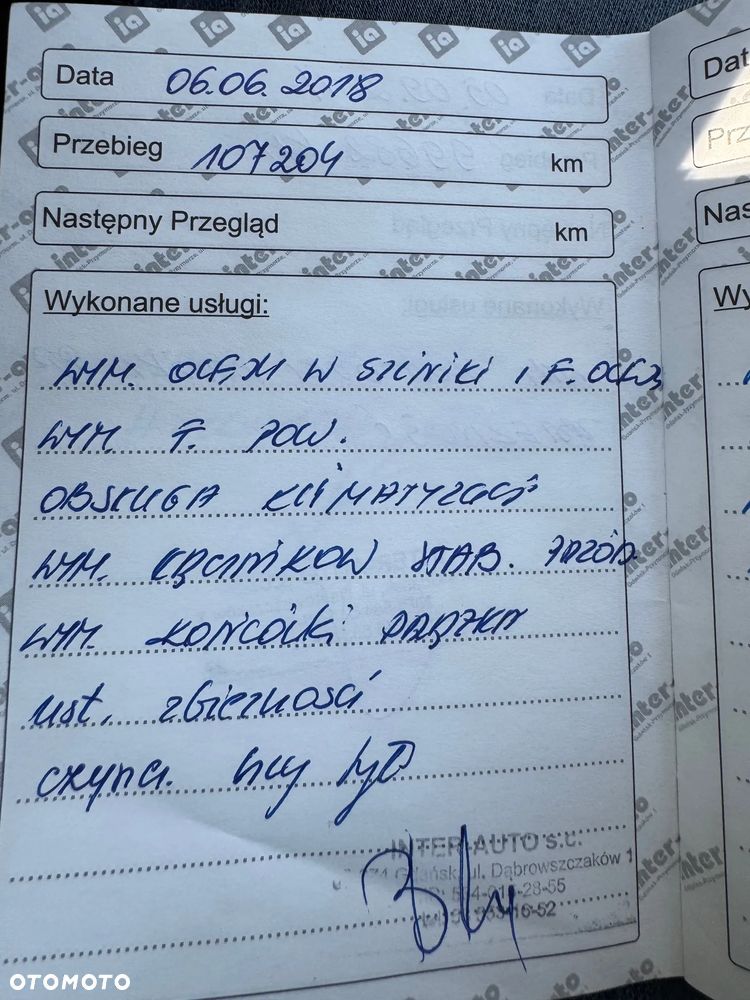 Data 06.06.2018
Przebieg 107204 km
Następny Przegląd km
Wykonane usługi:
WYM. OLEJU W SILNIKU I F. OLEJU
WYM. F. POW.
OBSŁUGA KLIMATYZACJI
WYM. ŁĄCZNIKÓW STAB. PRZÓD
WYM. KOŃCÓWKI DRĄŻKA
ust. zbieżności
czyna. tył
INTER-AUTO s.c.
Gdańsk, ul. Dąbrowszczaków 1
28-55
16-52
Dat
Prz
Nas
Wy
OTOMOTO